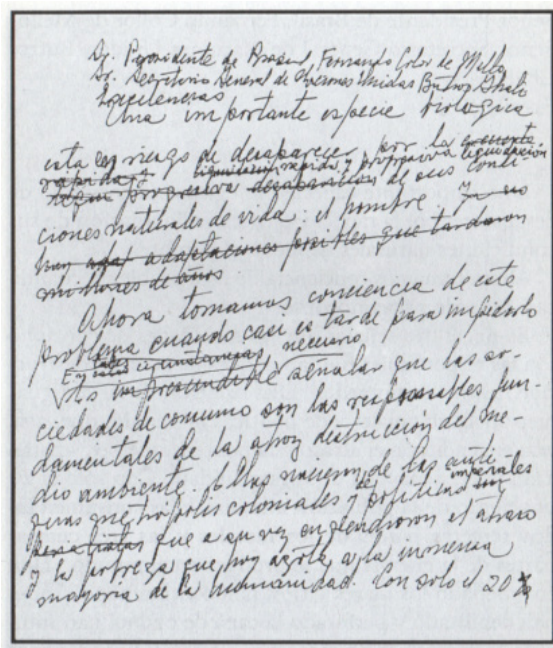 Sr. Presidente de Brasil, Fernando Color de Mello
Sr. Secretario General de Naciones Unidas Butros Ghali
Excelencias
Una importante especie biologica
esta en riesgo de desaparecer por la
liquidacion rapida y progresiva liquidación
rápida y progresiva desaparición de sus condi-
ciones naturales de vida: el hombre. y no
hay adaptaciones posibles que tardaron
millones de años
Ahora tomamos conciencia de este
problema cuando casi es tarde para impedirlo
En tales circunstancias necesario
Es imprescindible señalar que las so-
ciedades de consumo son las responsables fun-
damentales de la atroz destrucción del me-
dio ambiente. Ellas nacieron de las anti-
guas metrópolis coloniales y de políticas imperiales
que a su vez engendraron el atraso
y la pobreza que hoy azota a la inmensa
mayoría de la humanidad. Con solo el 20 %